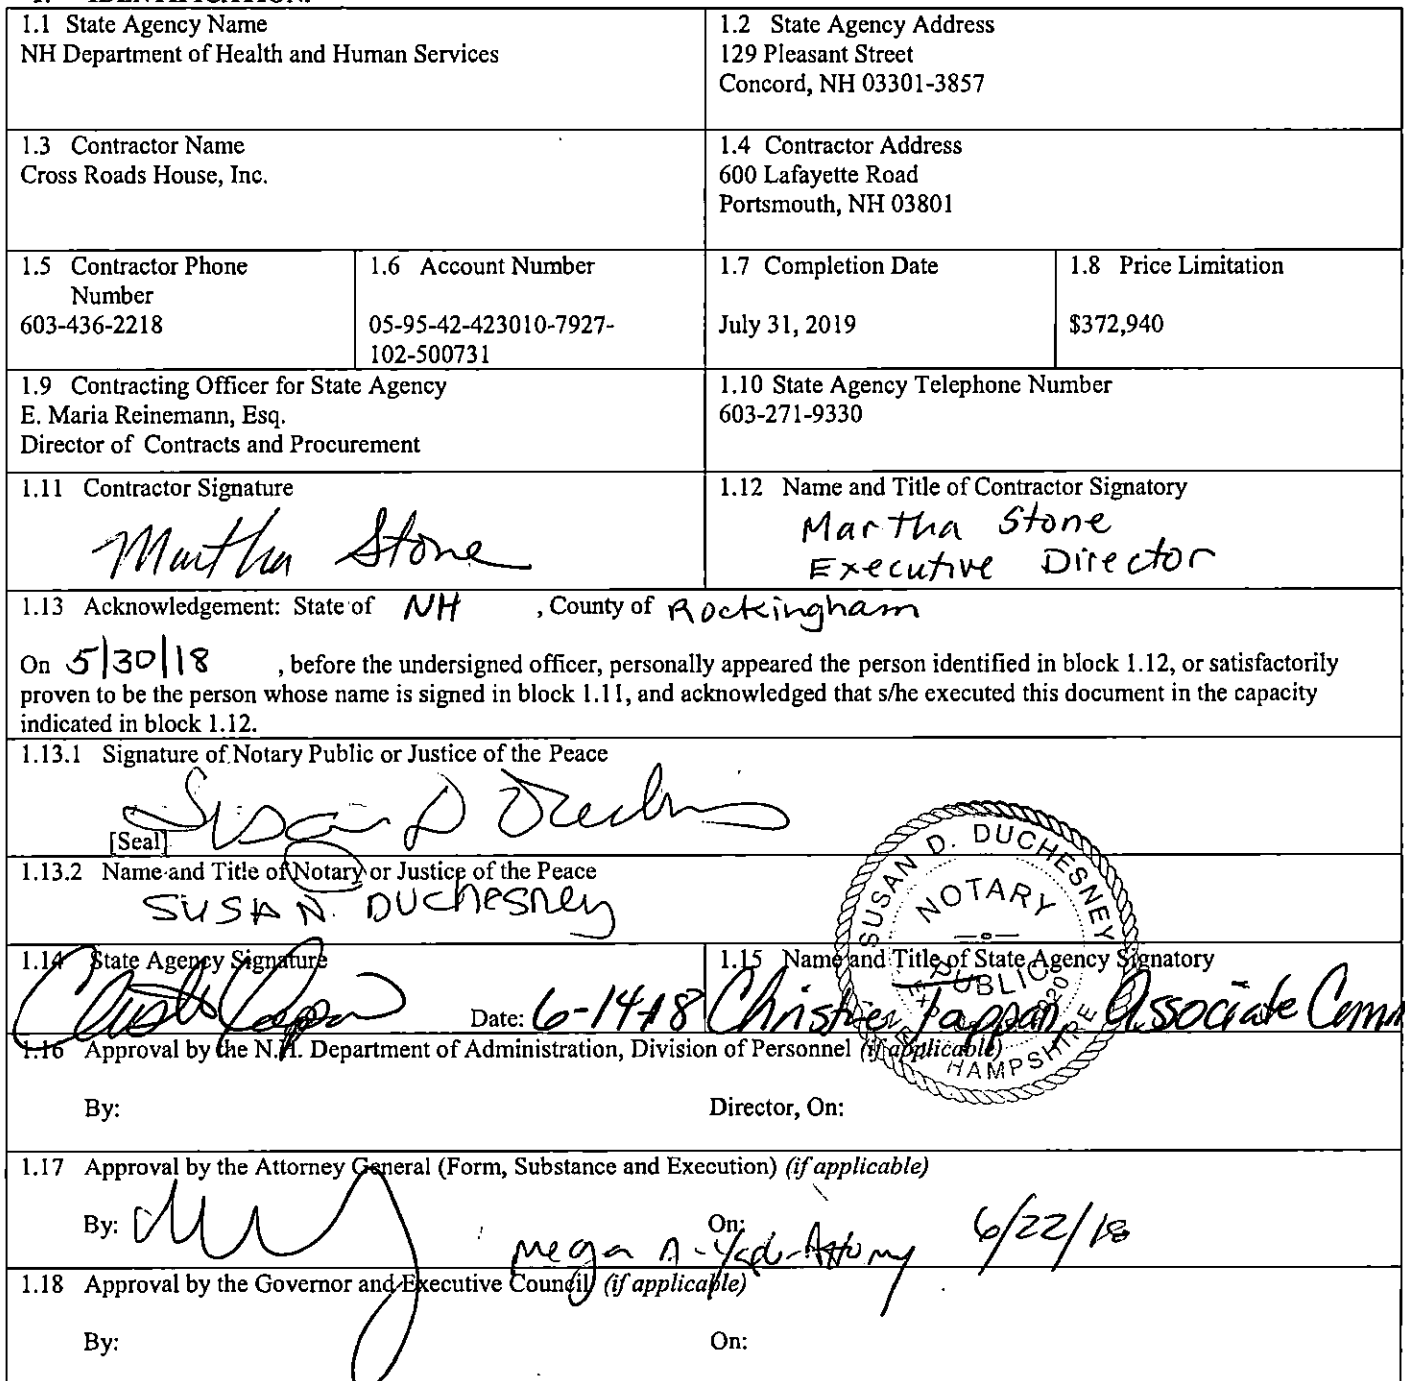 1.1 State Agency Name
NH Department of Health and Human Services
1.2 State Agency Address
129 Pleasant Street
Concord, NH 03301-3857
1.3 Contractor Name
Cross Roads House, Inc.
1.4 Contractor Address
600 Lafayette Road
Portsmouth, NH 03801
1.5 Contractor Phone
Number
603-436-2218
1.6 Account Number
05-95-42-423010-7927-
102-500731
1.7 Completion Date
July 31, 2019
1.8 Price Limitation
$372,940
1.9 Contracting Officer for State Agency
E. Maria Reinemann, Esq.
Director of Contracts and Procurement
1.10 State Agency Telephone Number
603-271-9330
1.11 Contractor Signature
Martha Stone
1.12 Name and Title of Contractor Signatory
Martha Stone
Executive Director
1.13 Acknowledgement: State of NH , County of Rockingham
On 5/30/18 , before the undersigned officer, personally appeared the person identified in block 1.12, or satisfactorily
proven to be the person whose name is signed in block 1.11, and acknowledged that s/he executed this document in the capacity
indicated in block 1.12.
1.13.1 Signature of Notary Public or Justice of the Peace
Susan D
[Seal]
1.13.2 Name and Title of Notary or Justice of the Peace
SUSAN. Duchesney
SUSAN D. DUCHESNEY
NOTARY
PUBLIC
HAMPSHIRE
1.14 State Agency Signature
Date: 6-14-18
1.15 Name and Title of State Agency Signatory
Tappan Associate Comm
1.16 Approval by the N.H. Department of Administration, Division of Personnel (if applicable)
By:
Director, On:
1.17 Approval by the Attorney General (Form, Substance and Execution) (if applicable)
By:
On: 6/22/18
1.18 Approval by the Governor and Executive Council (if applicable)
By:
On: